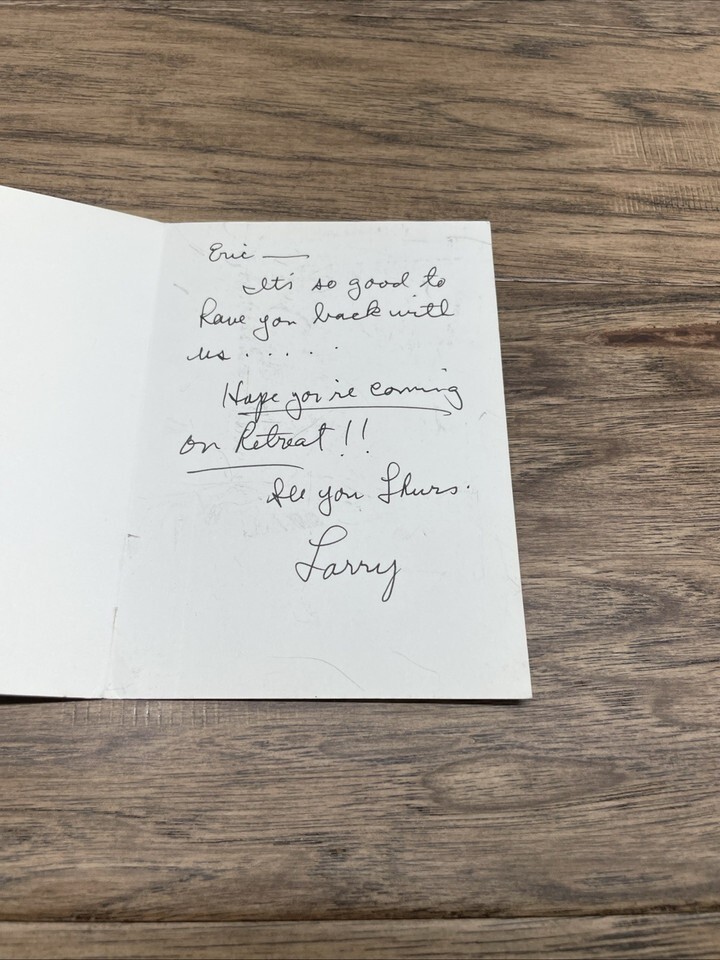 Eric —
It's so good to
have you back with
us . . . . .
Hope you're coming
on Retreat!!
See you Thurs.
Larry